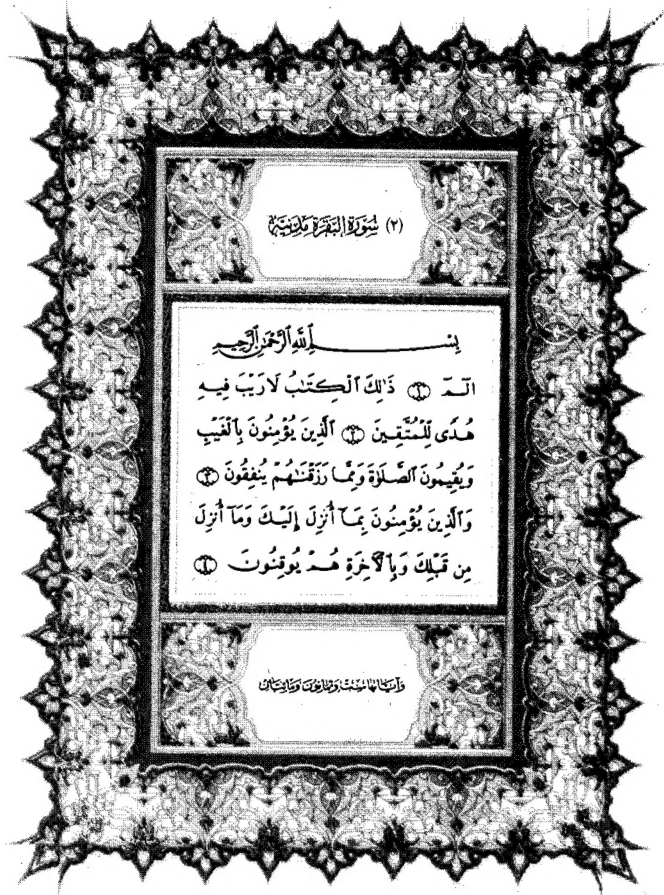 (٢) سُورَة البَقَرَة مَدَنِيَّة
بِسْمِ ٱللَّهِ ٱلرَّحْمَٰنِ ٱلرَّحِيمِ
الٓمٓ ١ ذَٰلِكَ ٱلْكِتَٰبُ لَا رَيْبَ فِيهِ
هُدًى لِّلْمُتَّقِينَ ٢ ٱلَّذِينَ يُؤْمِنُونَ بِٱلْغَيْبِ
وَيُقِيمُونَ ٱلصَّلَوٰةَ وَمِمَّا رَزَقْنَٰهُمْ يُنفِقُونَ ٣
وَٱلَّذِينَ يُؤْمِنُونَ بِمَآ أُنزِلَ إِلَيْكَ وَمَآ أُنزِلَ
مِن قَبْلِكَ وَبِٱلْءَاخِرَةِ هُمْ يُوقِنُونَ ٤
وآياتها ست وثمانون ومائتان